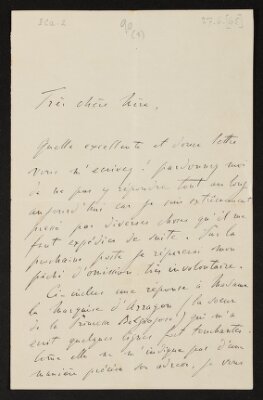 90
(1)
Très chère Mère,
Quelle excellente et douce lettre
vous m'écrivez! pardonnez moi
de ne pas y répondre tout au long
aujourd'hui car je suis extrêmement
pressé par diverses choses qu'il me
faut expédier de suite. Par la
prochaine poste je réparerai mon
péché d'omission très involontaire.
Ci-inclus une réponse à Madame
la Marquise d'Arragon (la soeur
de la Princesse Belgiojoso) qui m'a
écrit quelques lignes fort touchantes.
Comme elle ne m'indique pas d'une
manière précise son adresse, je vous